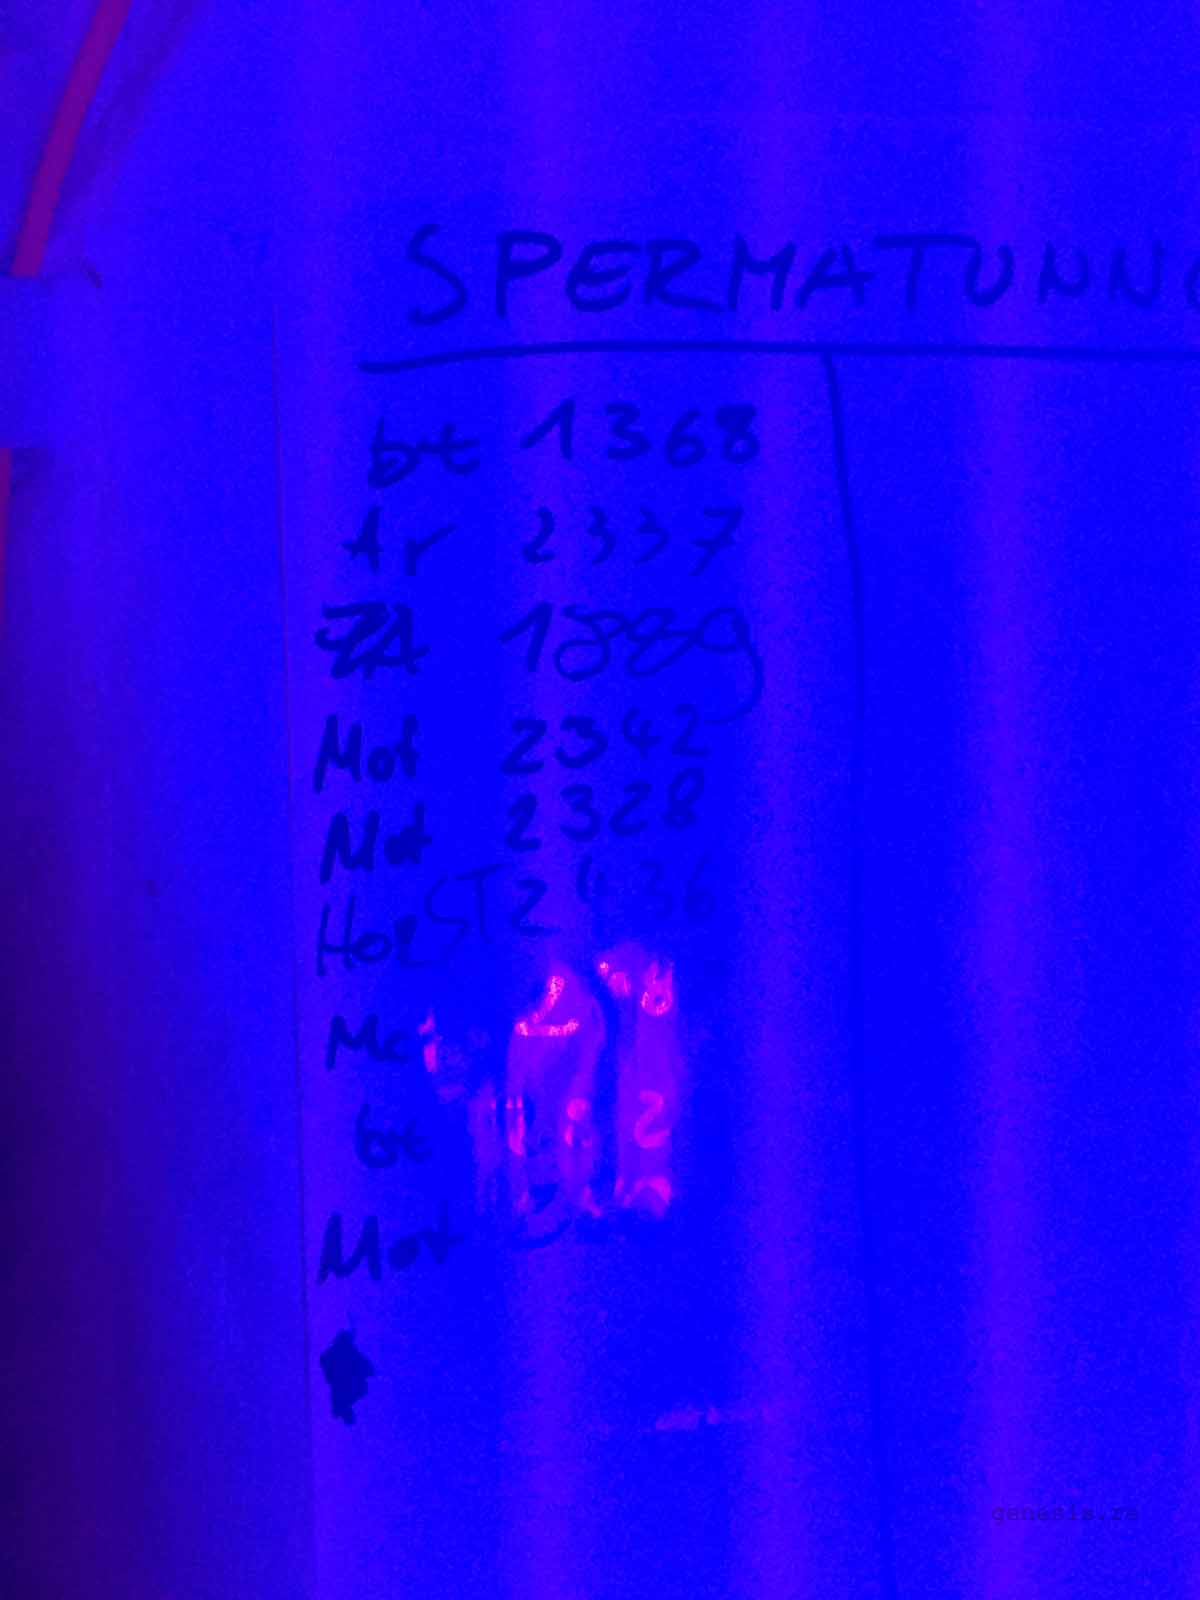 SPERMATUNN
bt 1368
Ar 2337
ZA 1889
Mot 2342
Mot 2328
HORST 2436
bt
Mot
genesis.re